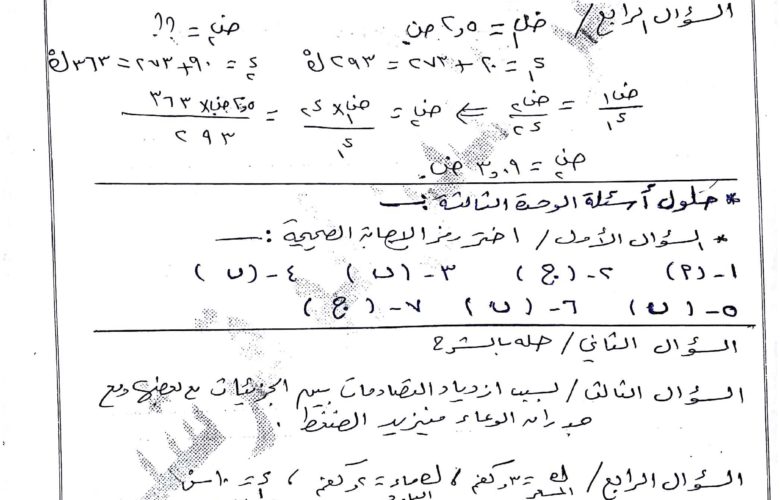 السؤال الرابع / ض١ = ٢,٥ ض. ض٢ = ??
د١ = ٢٠ + ٢٧٣ = ٢٩٣ ك د٢ = ٩٠ + ٢٧٣ = ٣٦٣ ك
ض١/د١ = ض٢/د٢ ⇐ ض٢ = ض١×د٢/د١ = ٢,٥ ض×٣٦٣/٢٩٣
ض٢ = ٣,٠٩ ض.
* حلول أسئلة الوحدة الثالثة :ـ
* السؤال الأول / اختر رمز الإجابة الصحيحة :ـ
١-(P) ٢-(ج) ٣-(ب) ٤-(ب)
٥-(ب) ٦-(ب) ٧-(ج)
السؤال الثاني / حله بالشرح
السؤال الثالث / بسبب ازدياد التصادمات بين الجزيئات مع بعضها ومع
جدران الوعاء فيزيد الضغط .
السؤال الرابع /